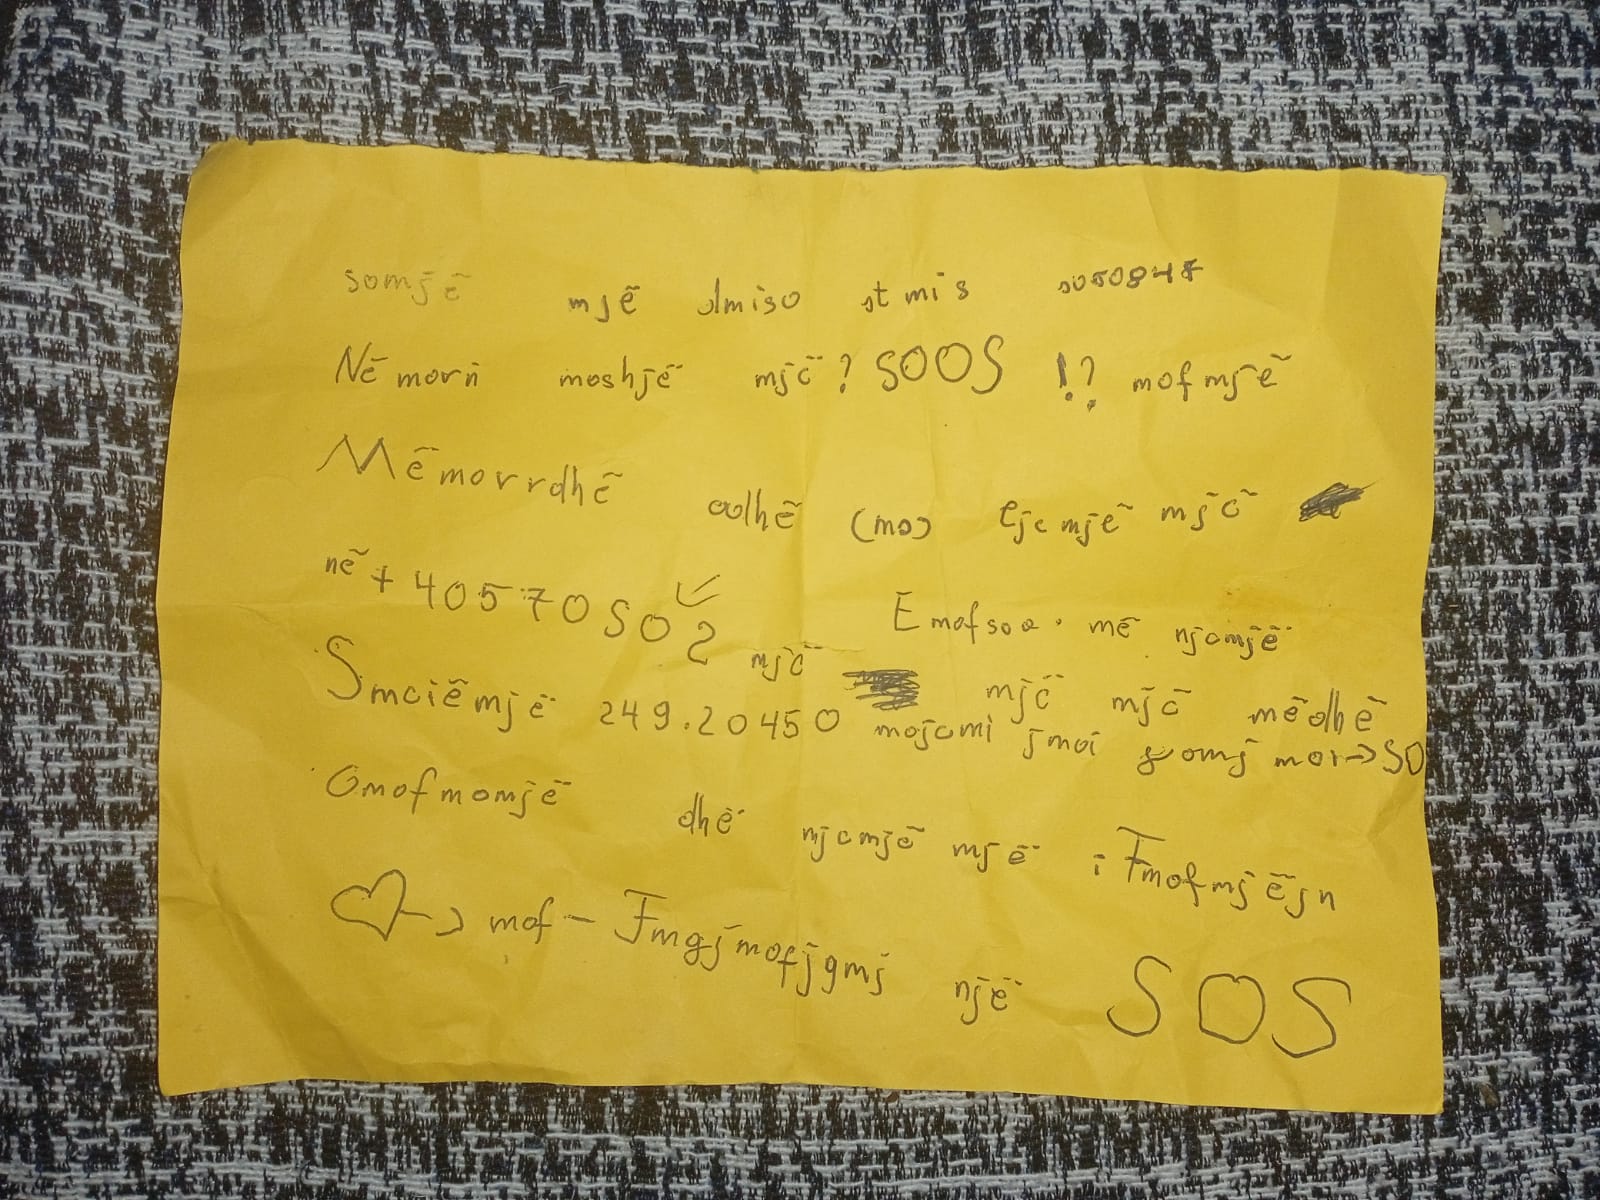 somjë mjë dmiso stmis 5050847
Nëmorn moshjë mjë? SOOS !? mofmjë
Mëmorrdhë odhë (mo) Ejcmjë mjë
në + 4057050 2 mjë Emofsoa. më njomjë
Smciëmjë 249.20450 mjë mjë mëdhë
mojomi jmoi yomj mor→SO
Omofmomjë dhë njcmjë mjë i Fmofmjëjn
mof - Fmgjmofjgmj një SOS